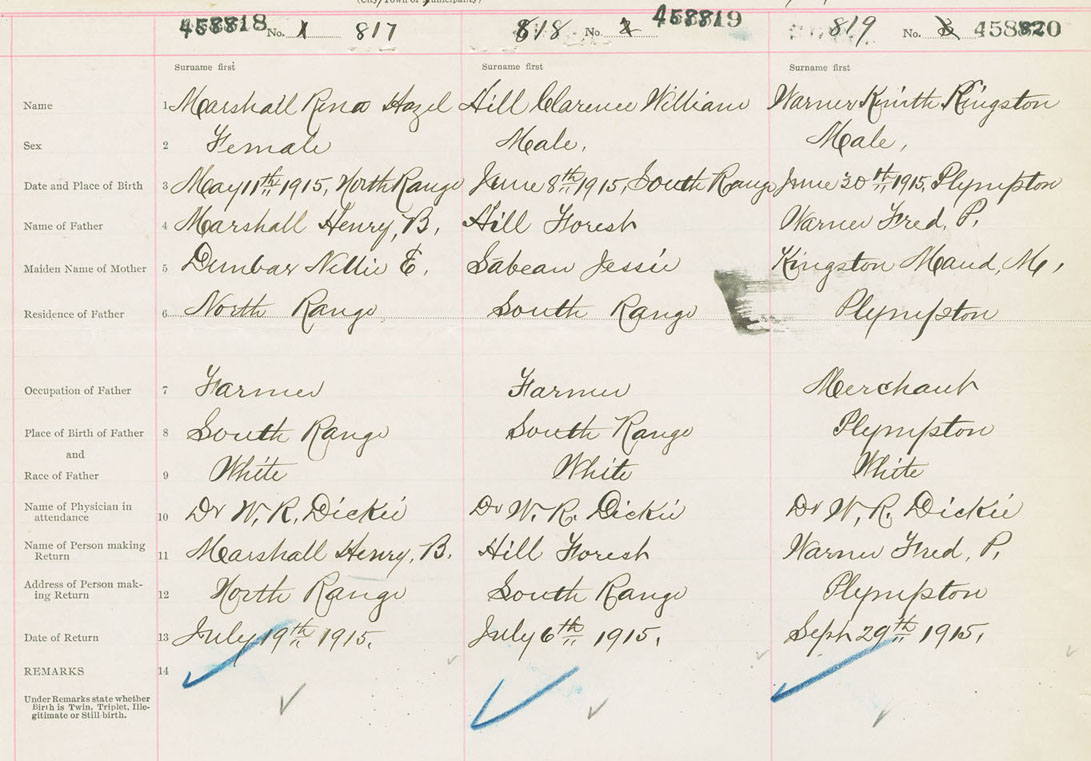 (City, Town or Municipality)
458818 No. 1 817 818 No. 2 458819 819 No. 3 458820
Surname first Surname first Surname first
Name 1 Marshall Rina Hazel Hill Clarence William Warner Kinith Kingston
Sex 2 Female Male, Male,
Date and Place of Birth 3 May 11th 1915, North Range June 8th 1915, South Range June 30th 1915, Plympton
Name of Father 4 Marshall Henry, B. Hill Forest Warner Fred, P.
Maiden Name of Mother 5 Dunbar Nillie E. Sabean Jessie Kingston Maud, M,
Residence of Father 6 North Range South Range Plympton
Occupation of Father 7 Farmer Farmer Merchant
Place of Birth of Father 8 South Range South Range Plympton
and
Race of Father 9 White White White
Name of Physician in
attendance 10 Dr W. R. Dickie Dr W. R. Dickie Dr W. R. Dickie
Name of Person making
Return 11 Marshall Henry, B. Hill Forest Warner Fred, P.
Address of Person mak-
ing Return 12 North Range South Range Plympton
Date of Return 13 July 19th 1915. July 6th 1915. Sept 29th 1915.
REMARKS 14
Under Remarks state whether
Birth is Twin, Triplet, Ille-
gitimate or Still birth.